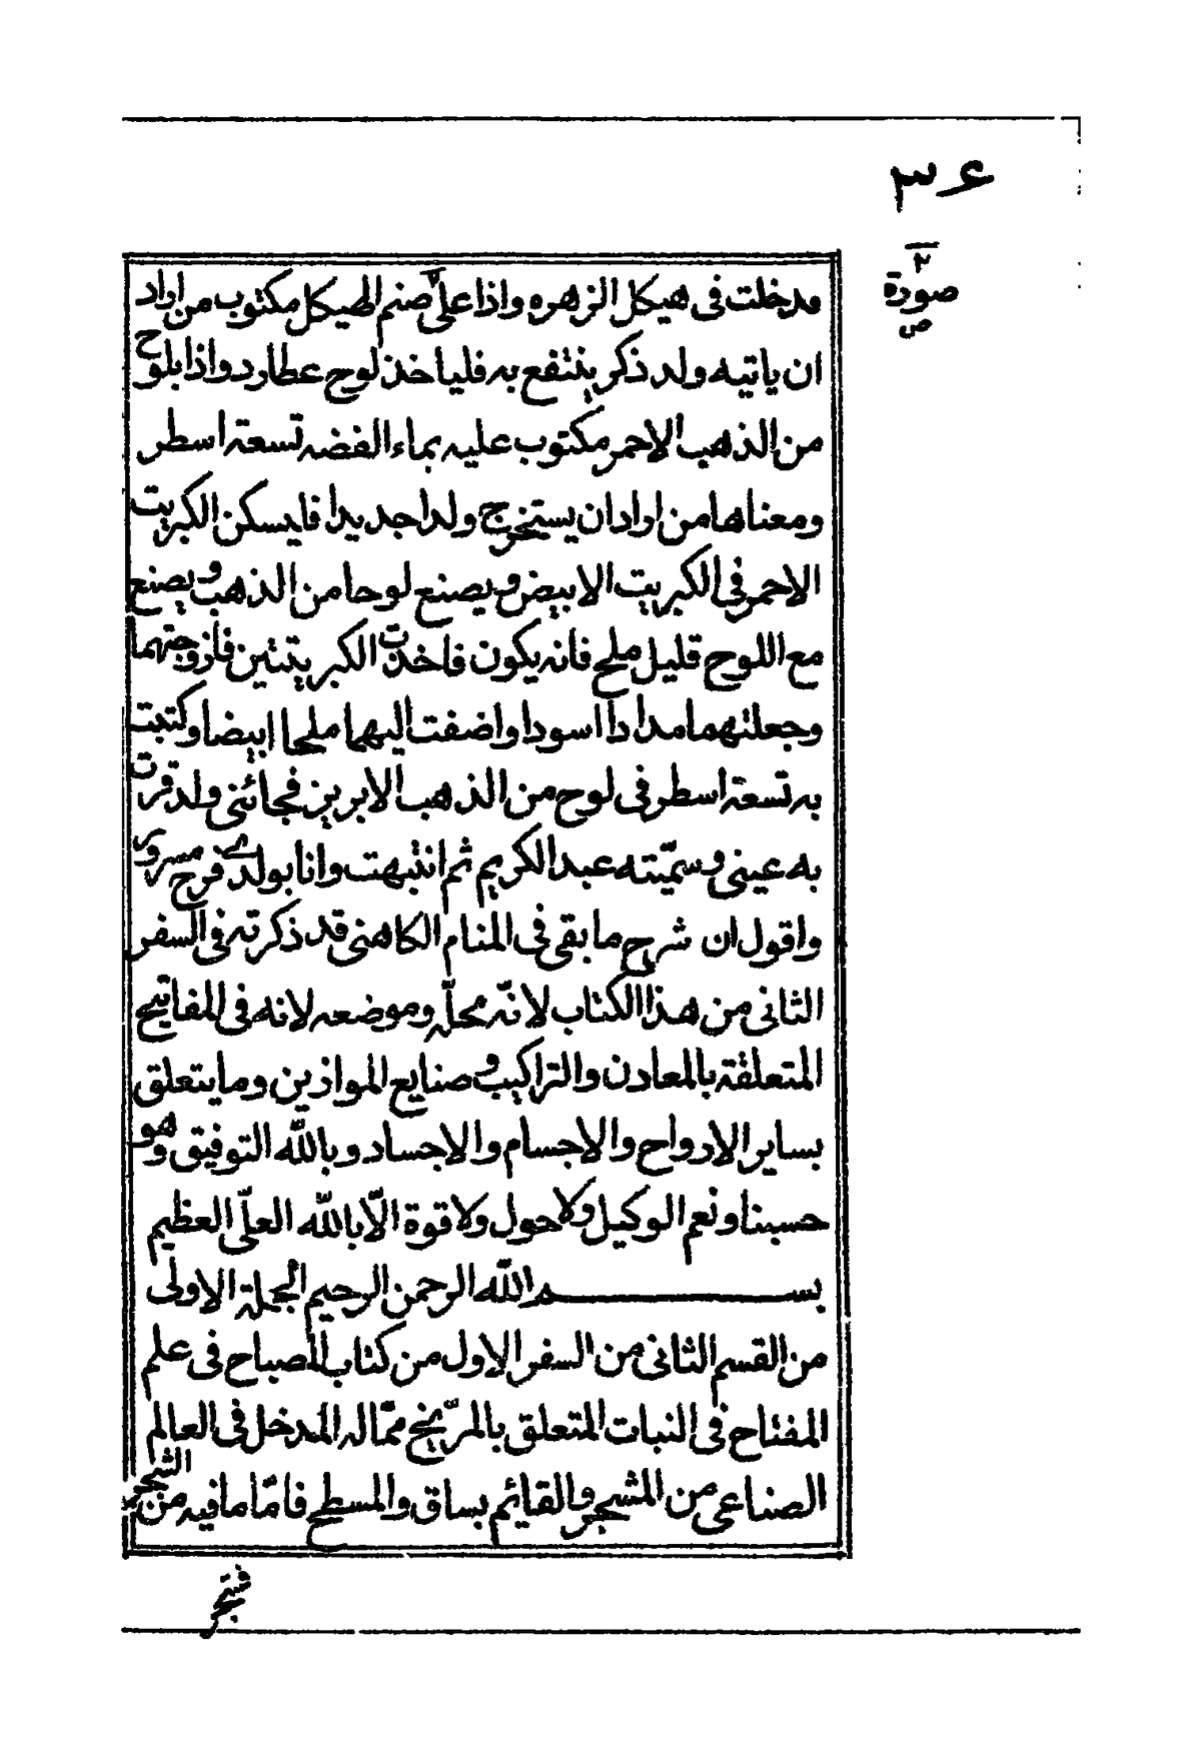 ع ٣
٢
صورة
ص
ودخلت فى هيكل الزهره واذا على صنم الهيكل مكتوب من اراد
ان ياتيه ولد ذكر ينتفع به فلياخذ لوح عطارد واذا بلوح
من الذهب الاحمر مكتوب عليه بماء الفضه تسعة اسطر
ومعناها من اراد ان يستخرج ولدا جديدا فليسكن الكبريت
الاحمر فى الكبريت الابيض ويصنع لوحا من الذهب ويصنع
مع اللوح قليل ملح فانه يكون فاخذت الكبريتتين فازوجتهما
وجعلتهما مدادا اسودا واضفت اليهما ملحا ابيضا وكتبت
به تسعة اسطر فى لوح من الذهب الابريز فجائنى ولد قرت
به عينى وسمّيته عبد الكريم ثم انتبهت وانا بولدى فرح مسرور
واقول ان شرح ما بقى فى المنام الكاهنى قد ذكرته فى السفر
الثانى من هذا الكتاب لانّه محلّه وموضعه لانه فى المفاتيح
المتعلقة بالمعادن والتراكيب وصنايع الموازين وما يتعلق
بساير الارواح والاجسام والاجساد وبالله التوفيق وهو
حسبنا ونعم الوكيل ولا حول ولا قوة الّا بالله العلّى العظيم
بسم الله الرحمن الرحيم الجملة الاولى
من القسم الثانى من السفر الاول من كتاب المصباح فى علم
المفتاح فى النبات المتعلق بالمرّيخ ممّا له المدخل فى العالم
الصناعى من المشجر والقائم بساق والمسطح فامّا ما فيه من الشجر
فشجر